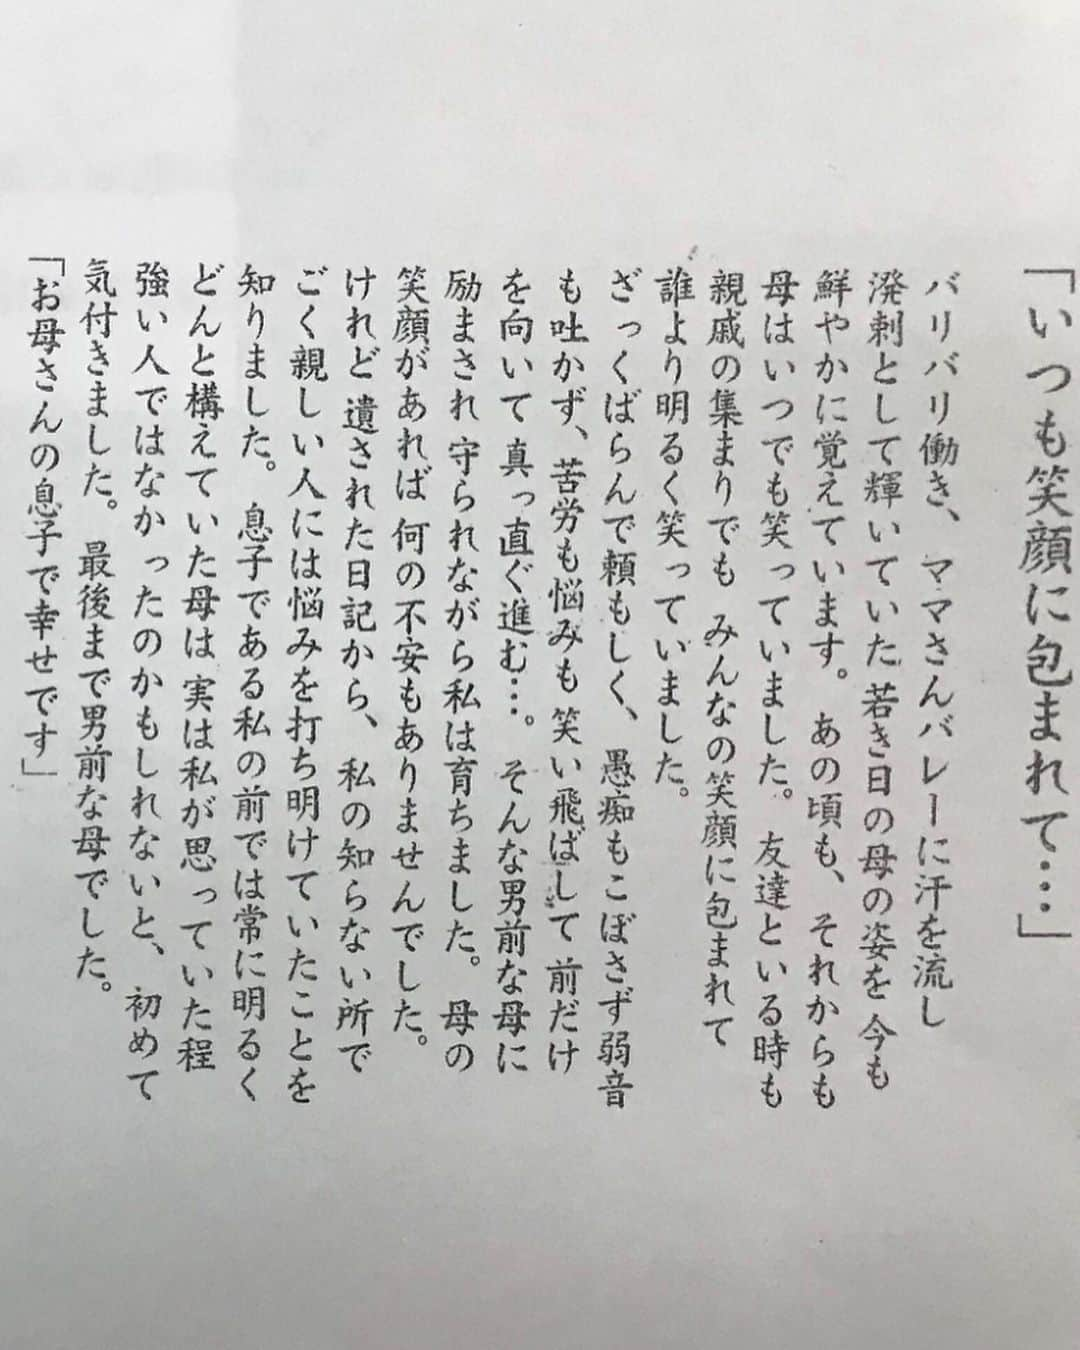 「いつも笑顔に包まれて…」
バリバリ働き、ママさんバレーに汗を流し
溌剌として輝いていた 若き日の母の姿を 今も
鮮やかに覚えています。 あの頃も、それからも
母はいつでも笑っていました。 友達といる時も
親戚の集まりでも みんなの笑顔に包まれて
誰より明るく笑っていました。
ざっくばらんで頼もしく、 愚痴もこぼさず弱音
も吐かず、苦労も悩みも 笑い飛ばして 前だけ
を向いて 真っ直ぐ進む…。 そんな男前な母に
励まされ 守られながら私は育ちました。 母の
笑顔があれば 何の不安もありませんでした。
けれど 遺された日記から、 私の知らない所で
ごく親しい人には悩みを打ち明けていたことを
知りました。 息子である私の前では常に明るく
どんと構えていた母は 実は私が思っていた程
強い人ではなかったのかもしれないと、 初めて
気付きました。 最後まで男前な母でした。
「お母さんの息子で幸せです」